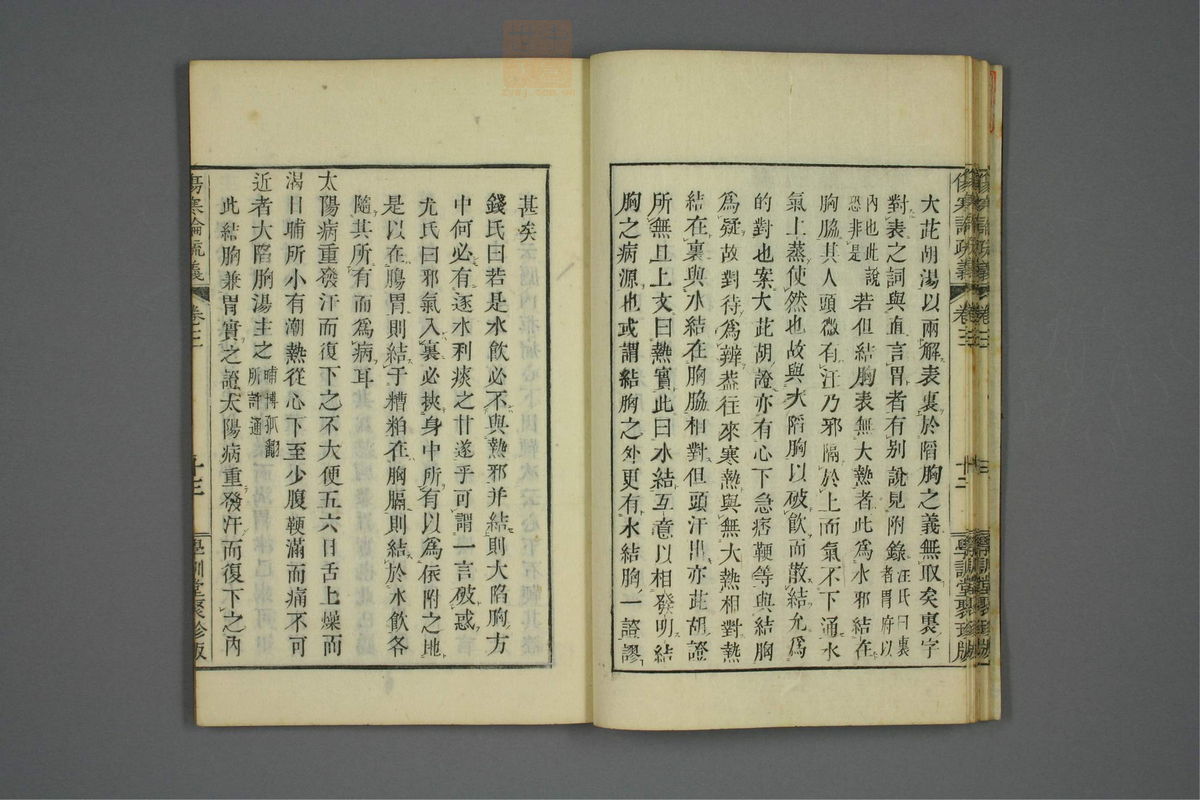 大茈胡湯以兩解表裏於陷胸之義無取矣裏字
對表之詞與直言胃者有別說見附錄汪氏曰裏者胃府以
內也此說恐非是若但結胸表無大熱者此爲水邪結在
胸脇其人頭微有汗乃邪隔於上而氣不下通水
氣上蒸使然也故與大陷胸以破飮而散結允爲
的對也案大茈胡證亦有心下急痞鞕等與結胸
爲疑故對待爲辨蓋往來寒熱與無大熱相對熱
結在裏與水結在胸脇相對但頭汗出亦茈胡證
所無且上文曰熱實此曰水結互意以相發明結
胸之病源也或謂結胸之外更有水結胸一證謬
傷寒論疏義
卷三
十二
學訓堂聚珍版
甚矣
錢氏曰若是水飮必不與熱邪并結則大陷胸方
中何必有逐水利痰之甘遂乎可謂一言破惑
尤氏曰邪氣入裏必挾身中所有以爲依附之地
是以在膓胃則結于糟粕在胸膈則結於水飮各
隨其所有而爲病耳
太陽病重發汗而復下之不大便五六日舌上燥而
渴日晡所小有潮熱從心下至少腹鞕滿而痛不可
近者大陷胸湯主之晡博孤翻所許通
此結胸兼胃實之證太陽病重發汗而復下之內
傷寒論疏義
卷三
十三
學訓堂聚珍版